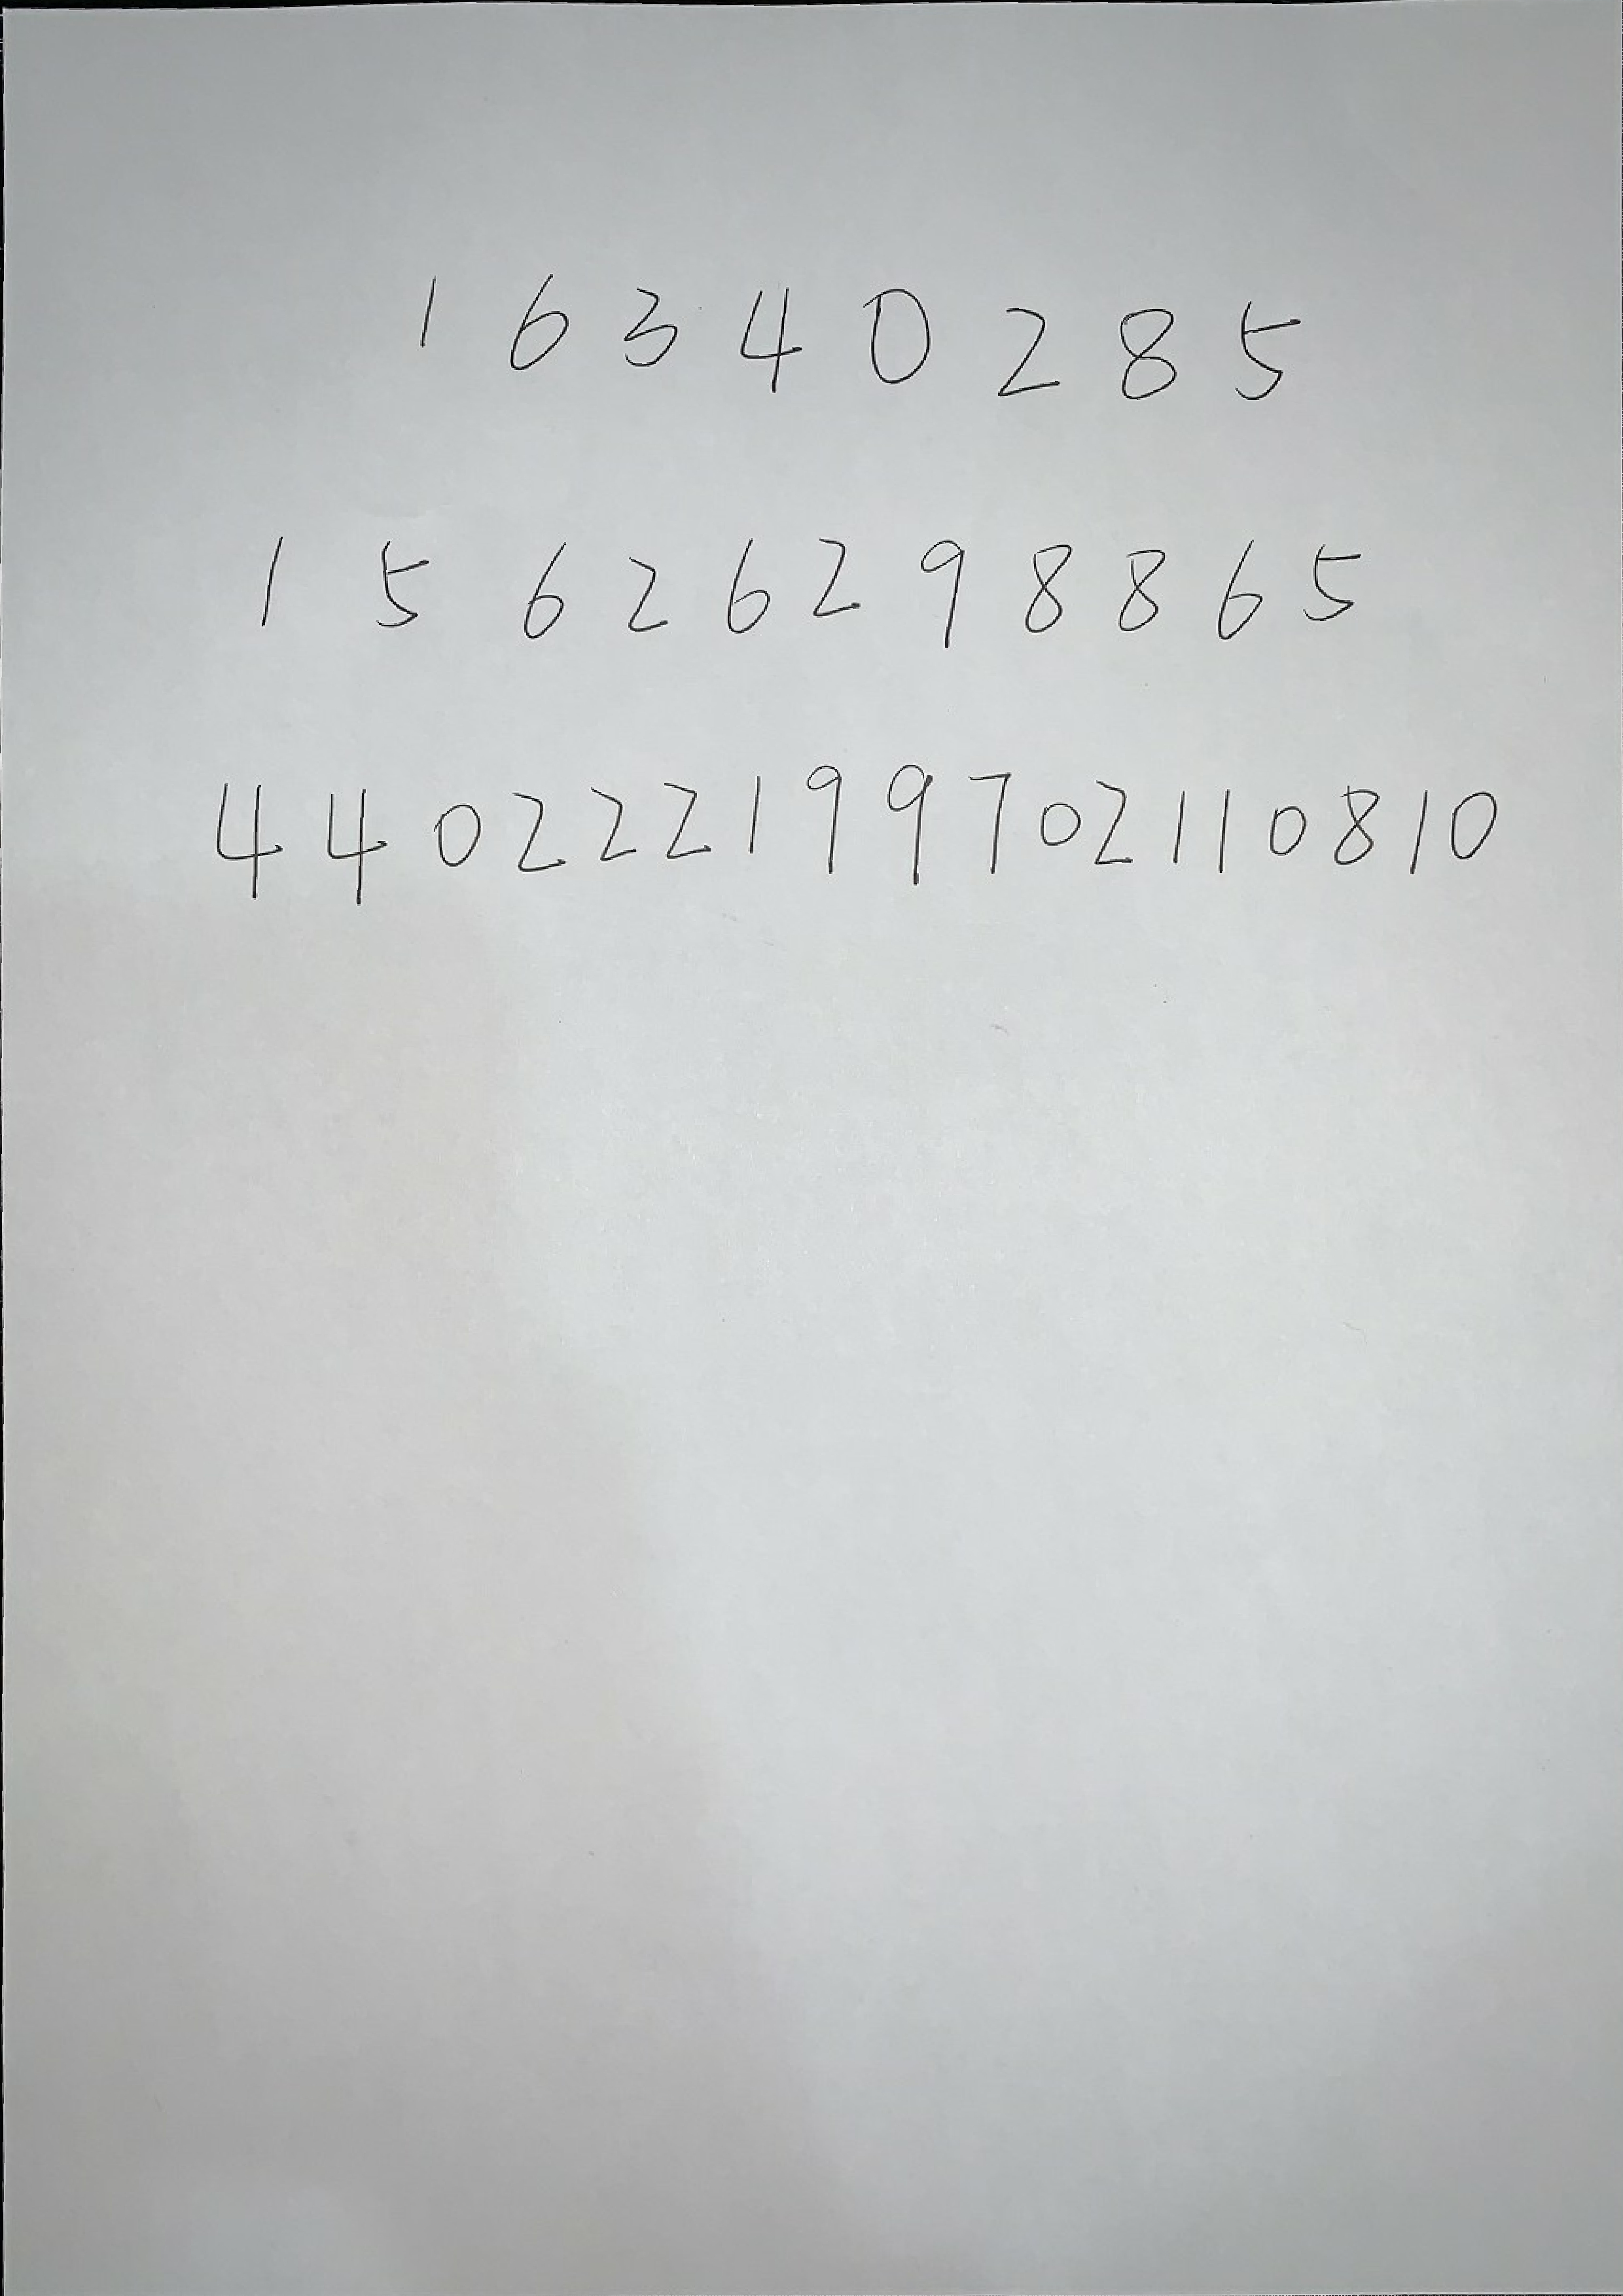 16340285
15626298865
440222199702110810